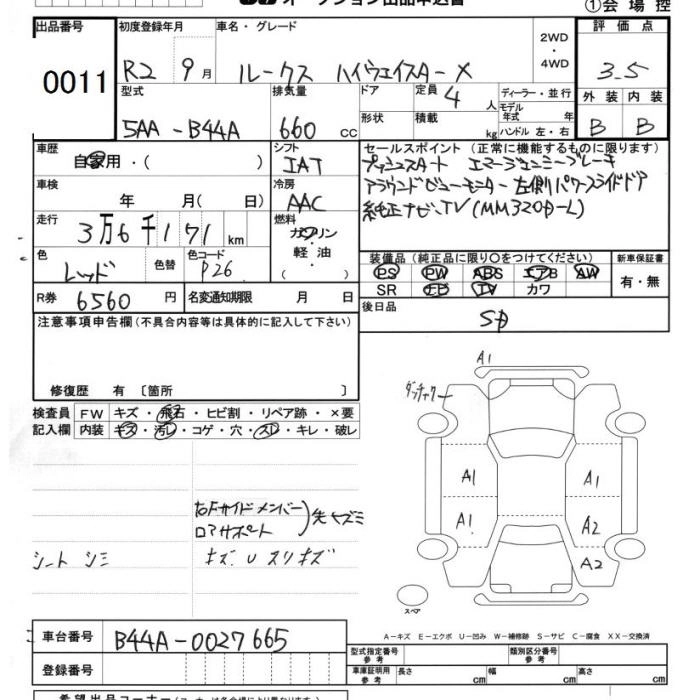 オークション出品申込書
①会場控
出品番号 初度登録年月 車名・グレード 2WD ・ 4WD 評価点
0011 R2 9月 ルークス ハイウェイスターX 3.5
型式 排気量 ドア 定員 4 人 ディーラー・並行 外装 内装
5AA-B44A 660 cc 形状 積載 kg モデル年式 年 B B
ハンドル 左・右
車歴 自家用・( ) シフト IAT セールスポイント (正常に機能するものに限ります)
プッシュスタート エマージェンシーブレーキ
車検 年 月( 日) 冷房 AAC アラウンドビューモニター 左側パワースライドドア
純正ナビ、TV (MM320D-L)
走行 3万6千171km 燃料 ガソリン
軽油
・( )
色 レッド 色替 色コード P26 装備品 (純正品に限り○をつけてください) 新車保証書
PS PW ABS エアB AW 有・無
SR ナビ TV カワ
R券 6560円 名変通知期限 月 日 後日品
SD
注意事項申告欄(不具合内容等は具体的に記入して下さい)
修復歴 有 〔箇所 〕
検査員 FW キズ・飛石・ヒビ割・リペア跡・×要
記入欄 内装 キズ・汚レ・コゲ・穴・スレ・キレ・破レ
A1
A1 A1
A1 A2
A2
右Fサイドメンバー
ロアサポート
先キズミ
シートシミ キズ、Uスリキズ
スペア
A-キズ E-エクボ U-凹み W-補修跡 S-サビ C-腐食 XX-交換済
車台番号 B44A-0027665 型式指定番号 参考 類別区分番号 参考
登録番号 車庫証明用 参考 長さ cm 幅 cm 高さ cm
希望出品コーナー